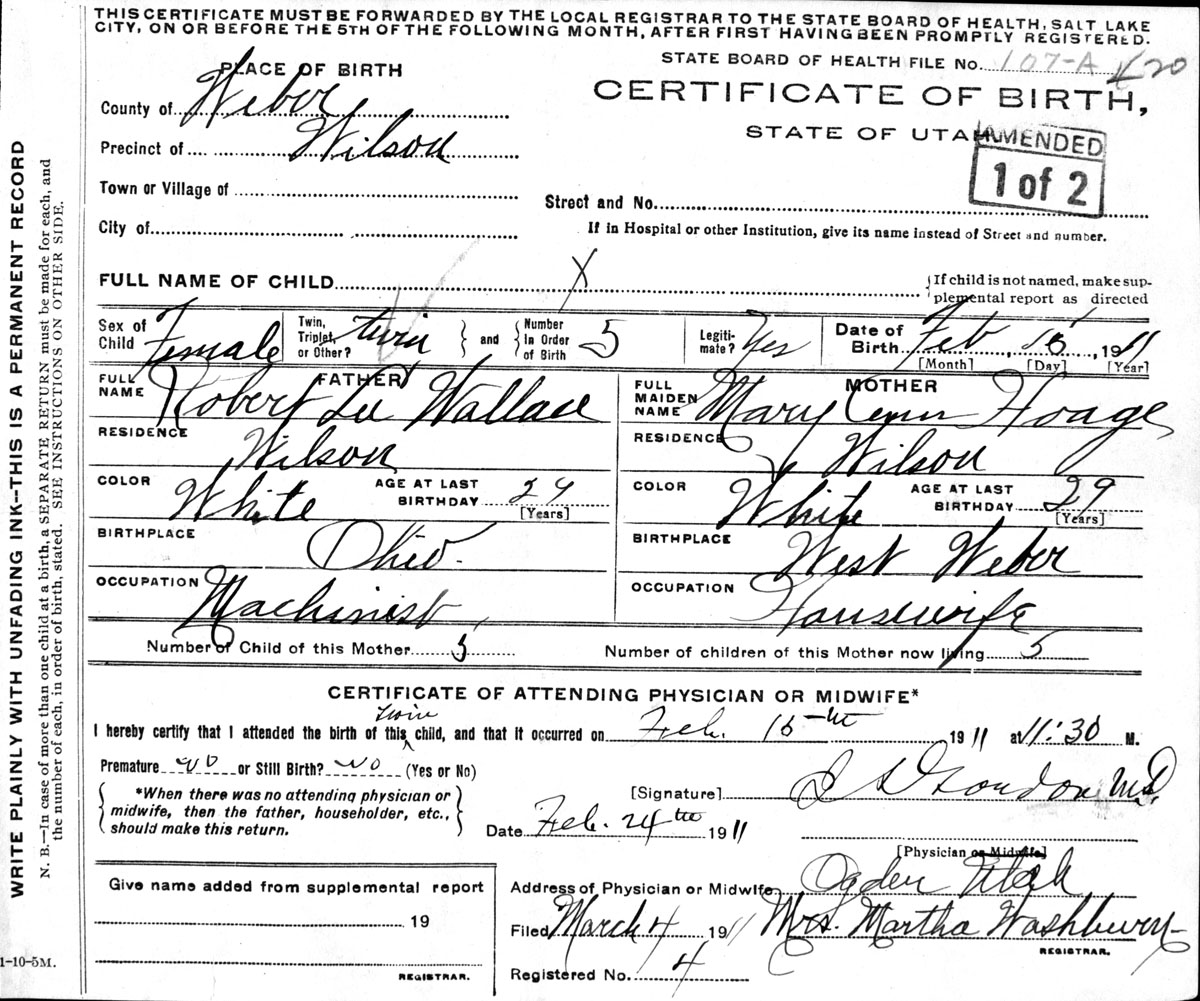 THIS CERTIFICATE MUST BE FORWARDED BY THE LOCAL REGISTRAR TO THE STATE BOARD OF HEALTH, SALT LAKE
CITY, ON OR BEFORE THE 5TH OF THE FOLLOWING MONTH, AFTER FIRST HAVING BEEN PROMPTLY REGISTERED.
STATE BOARD OF HEALTH FILE No. 107-A 20
PLACE OF BIRTH
CERTIFICATE OF BIRTH,
STATE OF UTAH
AMENDED
1 of 2
County of Weber
Precinct of Wilson
Town or Village of
Street and No.
City of
If in Hospital or other Institution, give its name instead of Street and number.
FULL NAME OF CHILD X
If child is not named, make sup-
plemental report as directed
Sex of Child Female
Twin, Triplet, or Other? twin and Number In Order of Birth 5
Legiti-mate? Yes
Date of Birth Feb 1911
[Month] [Day] [Year]
FATHER
FULL NAME Robert Lee Wallace
MOTHER
FULL MAIDEN NAME Mary Ann Hoage
RESIDENCE Wilson
RESIDENCE Wilson
COLOR White AGE AT LAST BIRTHDAY 29 [Years]
COLOR White AGE AT LAST BIRTHDAY 29 [Years]
BIRTHPLACE Ohio.
BIRTHPLACE West Weber
OCCUPATION Machinist
OCCUPATION Housewife
Number of Child of this Mother 5
Number of children of this Mother now living 5
CERTIFICATE OF ATTENDING PHYSICIAN OR MIDWIFE*
I hereby certify that I attended the birth of this twin child, and that it occurred on Feb. 1911 at 11:30 M.
Premature No or Still Birth? No (Yes or No)
*When there was no attending physician or
midwife, then the father, householder, etc.,
should make this return.
[Signature] M.D.
Date Feb. 24th 1911
[Physician or Midwife]
Give name added from supplemental report
19
REGISTRAR.
Address of Physician or Midwife Ogden Utah
Filed March 4 1911 Mrs. Martha Washburn
REGISTRAR.
Registered No. 4
1-10-5M.
WRITE PLAINLY WITH UNFADING INK--THIS IS A PERMANENT RECORD
N. B.—In case of more than one child at a birth, a SEPARATE RETURN must be made for each, and
the number of each, in order of birth, stated. SEE INSTRUCTIONS ON OTHER SIDE.